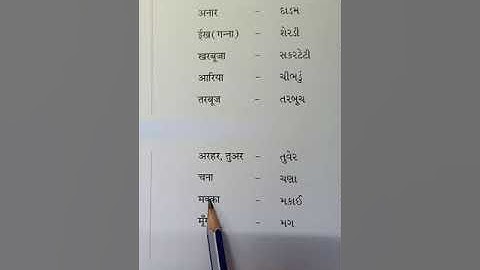 अनार - દાડમ
ईख(गन्ना) - શેરડી
खरबूजा - સકરટેટી
आरिया - ચીભડું
तरबूज - તરબૂચ
अरहर, तुअर - તુવેર
चना - ચણા
मक्का - મકાઈ
मूँग - મગ